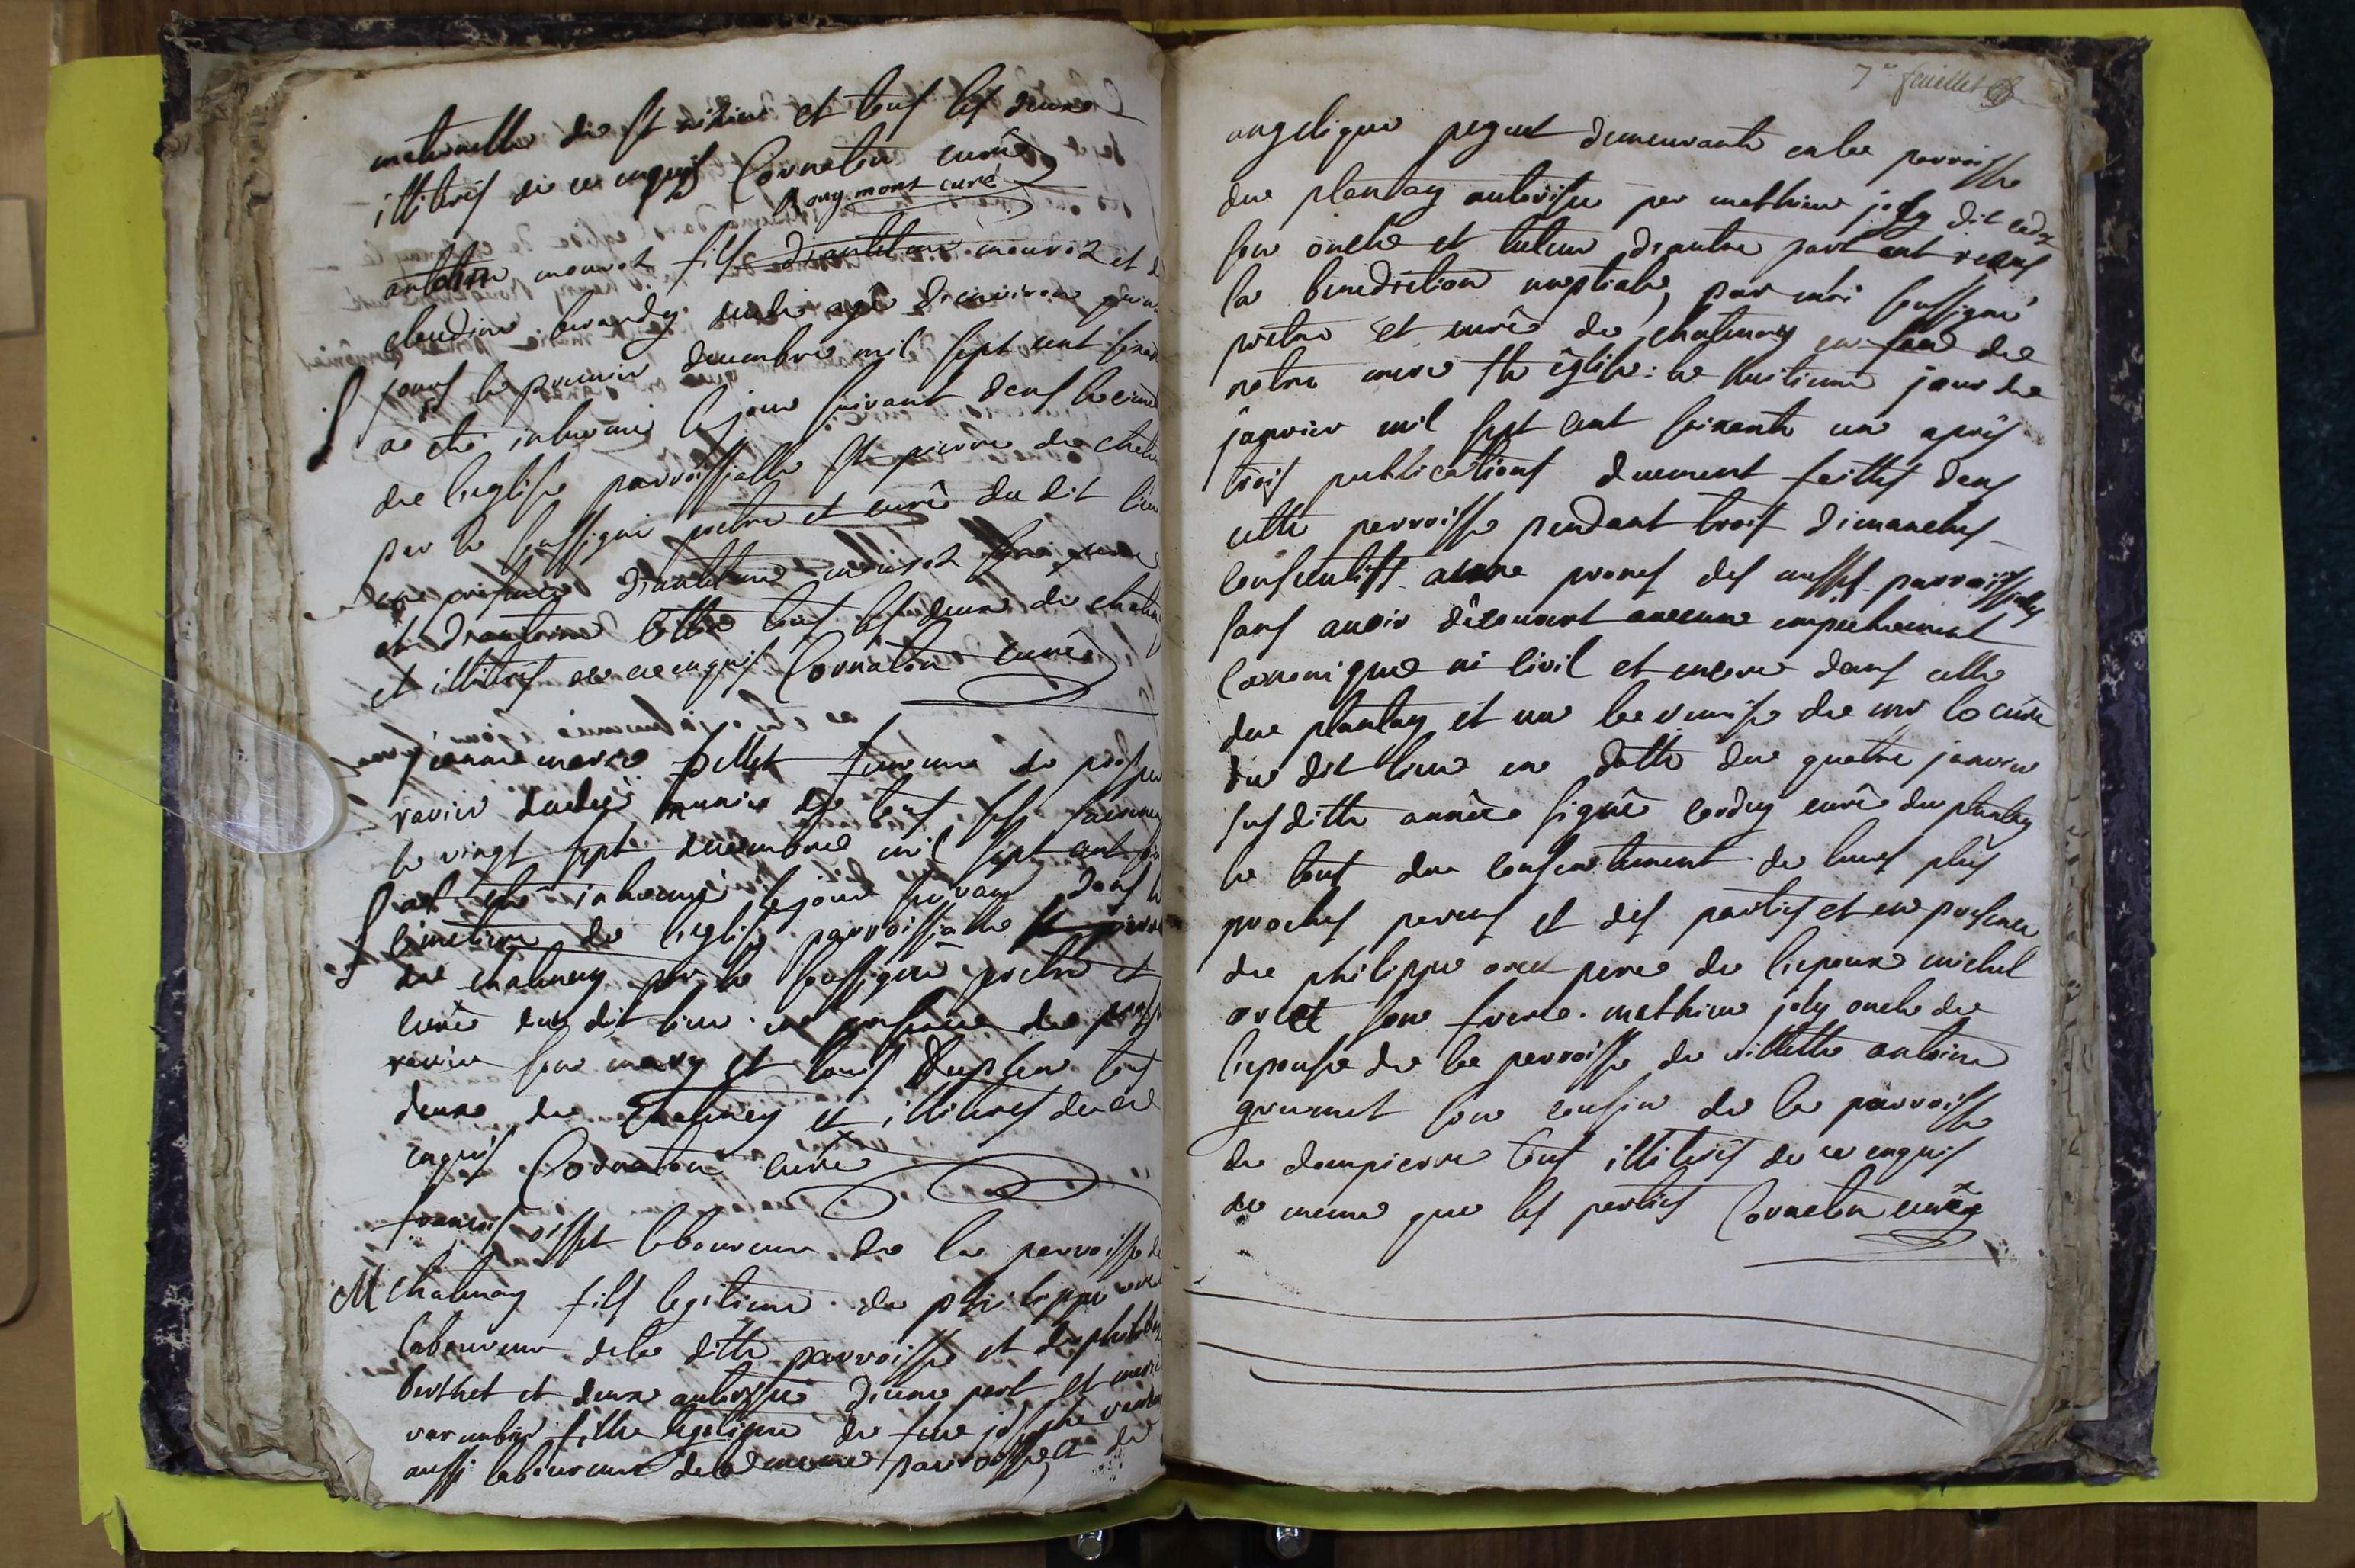 maternelle de st nizier et tous les deux
illiterés de ce enquis Cornaton curé
Rougemont curé
antoine mourez fils d'antoine mourez et d
claudine berardy decedé agé d'environ
jours le premier decembre mil sept cent soixan
a eté inhumé le jour suivant dans le cime
de l'eglise parroissialle st pierre de chate
par le soussigné pretre et curé du dit lieu
en presence d'antoine mourez son pere
et d'antoine tous les deux de chate
et illiterés de ce enquis Cornaton curé
jeanne marie pillet femme de
ravier decedée munie de tous ses sacremen
le vingt sept decembre mil sept cent
at eté inhumé le jour suivant dans le
cimetiere de l'eglise parroissialle st pierre
de chatenay par le soussigné pretre et
curé du dit lieu en presence de
ravier son mary et louis tous
deux de chatenay et illiterés de ce
enquis Cornaton curé
françois laboureur de la parroisse de
M chatenay fils legitime de philippe
laboureur de la ditte parroisse et de
berthet et deux autorisé d'une part et marie
fille legitime de feu joseph
aussi laboureur de la meme parroisse et de
7e feuillet
angelique peguet demeurante en la parroisse
du plantay autorisée par mathieu joly dit
son oncle et tuteur d'autre part ont reçus
la benediction nuptiale, par moi soussigné
pretre et curé de chatenay en face de
notre mere ste église: le huitieme jour de
janvier mil sept cent soixante un après
trois publications duement faittes dans
cette parroisse pendant trois dimanches
consecutifs aux prones des messes parroissialles
sans avoir découvert aucune empechement
canonique ni civil et encore dans celle
du plantay et vu la remise de mr le curé
du dit lieu en datte du quatre janvier
susditte année signé curé du plantay
le tout du consentement de leurs plus
proches parens et des parties et en presence
de philippe père de l'epoux michel
son frere mathieu joly oncle de
l'epouse de la parroisse de villette antoine
son cousin de la parroisse
de dompierre tous illiterés de ce enquis
de meme que les parties Cornaton curé